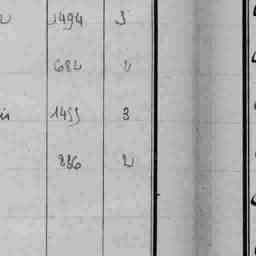 1494 3
682 2
1455 3
886 2